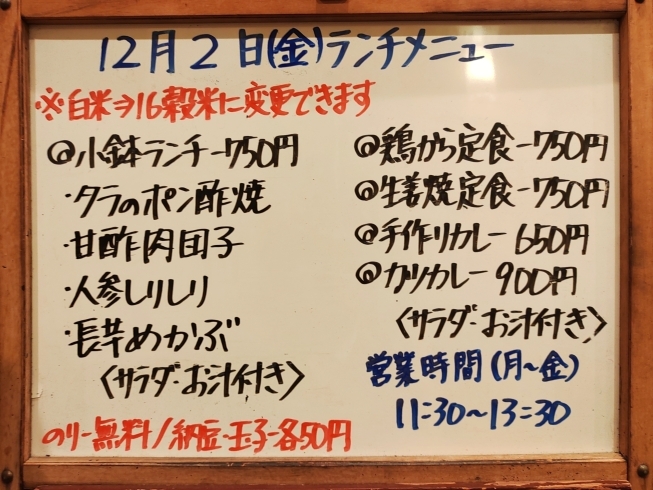 12月2日(金)ランチメニュー
※白米⇒16穀米に変更できます
@小鉢ランチー750円
・タラのポン酢焼
・甘酢肉団子
・人参しりしり
・長芋めかぶ
〈サラダ・お汁付き〉
のりー無料/納豆・玉子-各50円
@鶏から定食ー750円
@生姜焼定食ー750円
@手作りカレー 650円
@カツカレー 900円
〈サラダ・お汁付き〉
営業時間(月～金)
11:30～13:30